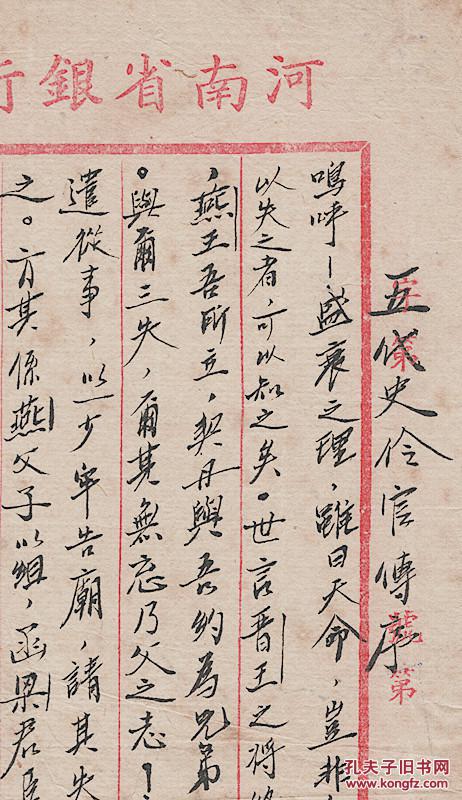 河南省銀行
五代史伶官傳序
號第
嗚呼！盛衰之理，雖曰天命，豈非
以失之者，可以知之矣。世言晋王之将
，燕王吾所立，契丹與吾約為兄弟
。與爾三失，爾其無忘乃父之志！
遣從事，以一少牢告廟，請其失
之。方其係燕父子以組，函梁君臣
孔夫子旧书网